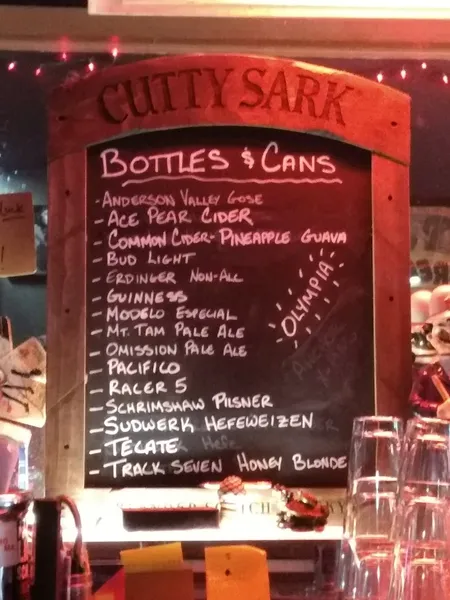 CUTTY SARK
BOTTLES & CANS
- ANDERSON VALLEY GOSE
- ACE PEAR CIDER
- COMMON CIDER - PINEAPPLE GUAVA
- BUD LIGHT
- ERDINGER NON-ALC
- GUINNESS
- MODELO ESPECIAL
- MT. TAM PALE ALE
- OMISSION PALE ALE
- PACIFICO
- RACER 5
- SCHRIMSHAW PILSNER
- SUDWERK HEFEWEIZEN
- TECATE
- TRACK SEVEN HONEY BLONDE
OLYMPIA